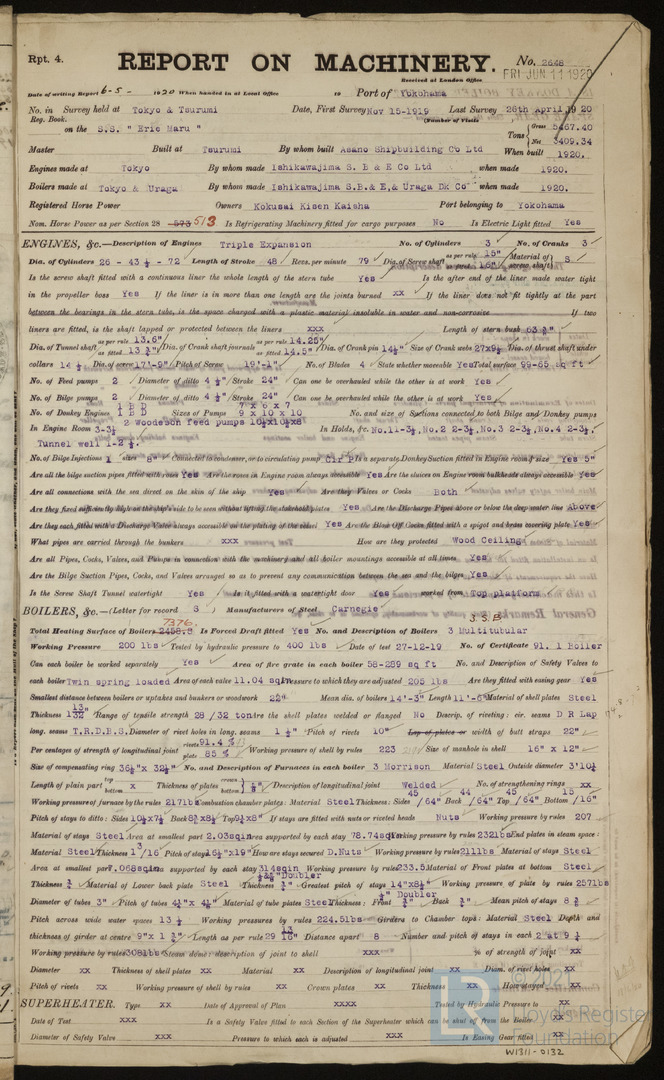 Rpt. 4.
REPORT ON MACHINERY.
No. 2648
Received at London Office
FRI JUN 11 1920
Date of writing Report 6-5- 1920 When handed in at Local Office 19 Port of Yokohama
No. in Survey held at Tokyo & Tsurumi Date, First Survey Nov 15-1919 Last Survey 28th April 1920
Reg. Book. (Number of Visits
on the S.S. "Eric Maru" Tons { Gross 5467.40
Net 3409.34
Master Built at Tsurumi By whom built Asano Shipbuilding Co Ltd When built 1920.
Engines made at Tokyo By whom made Ishikawajima S. B & E Co Ltd when made 1920.
Boilers made at Tokyo & Uraga By whom made Ishikawajima S.B.& E,& Uraga DK Co when made 1920.
Registered Horse Power Owners Kokusai Kisen Kaisha Port belonging to Yokohama
Nom. Horse Power as per Section 28 573 513 Is Refrigerating Machinery fitted for cargo purposes No Is Electric Light fitted Yes
ENGINES, &c.—Description of Engines Triple Expansion No. of Cylinders 3 No. of Cranks 3
Dia. of Cylinders 26 - 43½ - 72 Length of Stroke 48 Revs. per minute 79 Dia. of Screw shaft as per rule 15" as fitted 16" Material of screw shaft S
Is the screw shaft fitted with a continuous liner the whole length of the stern tube Yes Is the after end of the liner made water tight
in the propeller boss Yes If the liner is in more than one length are the joints burned xx If the liner does not fit tightly at the part
between the bearings in the stern tube, is the space charged with a plastic material insoluble in water and non-corrosive If two
liners are fitted, is the shaft lapped or protected between the liners xxx Length of stern bush 63¾"
Dia. of Tunnel shaft as per rule 13.6" as fitted 13¾" Dia. of Crank shaft journals as per rule 14.25" as fitted 14.5" Dia. of Crank pin 14½ Size of Crank webs 27x9½ Dia. of thrust shaft under
collars 14½ Dia. of screw 17'-9" Pitch of Screw 19'-1" No. of Blades 4 State whether moveable Yes Total surface 99-65 sq ft
No. of Feed pumps 2 Diameter of ditto 4½" Stroke 24" Can one be overhauled while the other is at work Yes
No. of Bilge pumps 2 Diameter of ditto 4½" Stroke 24" Can one be overhauled while the other is at work Yes
No. of Donkey Engines 1 B D 1 B Sizes of Pumps 7 x 6 x 7 9 x 10 x 10 No. and size of Suctions connected to both Bilge and Donkey pumps
2 Woodeson feed pumps 10½x10½x8
In Engine Room 3-3½ In Holds, &c. No.1 1-3½, No.2 2-3½, No.3 2-3½, No.4 2-3½.
Tunnel well 1-2½.
No. of Bilge Injections 1 sizes 8" Connected to condenser, or to circulating pump Cir P Is a separate Donkey Suction fitted in Engine room & size Yes 5"
Are all the bilge suction pipes fitted with roses Yes Are the roses in Engine room always accessible Yes Are the sluices on Engine room bulkheads always accessible Yes
Are all connections with the sea direct on the skin of the ship Yes Are they Valves or Cocks Both
Are they fixed sufficiently high on the ship's side to be seen without lifting the stokehold plates Yes Are the Discharge Pipes above or below the deep water line Above
Are they each fitted with a Discharge Valve always accessible on the plating of the vessel Yes Are the Blow Off Cocks fitted with a spigot and brass covering plate Yes
What pipes are carried through the bunkers xxx How are they protected Wood Ceiling
Are all Pipes, Cocks, Valves, and Pumps in connection with the machinery and all boiler mountings accessible at all times Yes
Are the Bilge Suction Pipes, Cocks, and Valves arranged so as to prevent any communication between the sea and the bilges Yes
Is the Screw Shaft Tunnel watertight Yes Is it fitted with a watertight door Yes worked from Top platform
BOILERS, &c.—(Letter for record S) Manufacturers of Steel Carnegie
3.S.B
Total Heating Surface of Boilers 7376 2458.8 Is Forced Draft fitted Yes No. and Description of Boilers 3 Multitubular
Working Pressure 200 lbs Tested by hydraulic pressure to 400 lbs Date of test 27-12-19 No. of Certificate 91. 1 Boiler
Can each boiler be worked separately Yes Area of fire grate in each boiler 58-289 sq ft No. and Description of Safety Valves to
each boiler Twin spring loaded Area of each valve 11.04 sqin Pressure to which they are adjusted 205 lbs Are they fitted with easing gear Yes
Smallest distance between boilers or uptakes and bunkers or woodwork 22" Mean dia. of boilers 14'-3" Length 11'-6" Material of shell plates Steel
Thickness 1 13/32" Range of tensile strength 28/32 ton Are the shell plates welded or flanged No Descrip. of riveting: cir. seams D R Lap
long. seams T.R.D.B.S. Diameter of rivet holes in long. seams 1½" Pitch of rivets 10" Lap of plates or width of butt straps 22"
Per centages of strength of longitudinal joint rivets 91.4% plate 85% Working pressure of shell by rules 223 Size of manhole in shell 16" x 12"
Size of compensating ring 36½" x 32½" No. and Description of Furnaces in each boiler 3 Morrison Material Steel Outside diameter 3'10½
Length of plain part top x bottom Thickness of plates crown bottom ½" Description of longitudinal joint Welded No. of strengthening rings xx
Working pressure of furnace by the rules 217lbs Combustion chamber plates: Material Steel Thickness: Sides 45/64" Back 44/64" Top 45/64" Bottom 15/16"
Pitch of stays to ditto: Sides 10½x7½ Back 8¾x8½ Top 9½x8" If stays are fitted with nuts or riveted heads Nuts Working pressure by rules 207
Material of stays Steel Area at smallest part 2.03sqin Area supported by each stay 78.74sqin Working pressure by rules 232lbs End plates in steam space:
Material Steel Thickness 1 3/16 Pitch of stays 16½"x19" How are stays secured D.Nuts Working pressure by rules 211lbs Material of stays Steel
Area at smallest part 7.068sqin supported by each stay 314sqin Working pressure by rules 233.5 Material of Front plates at bottom Steel
Doubler
Thickness ¾ Material of Lower back plate Steel Thickness ¾" Greatest pitch of stays 14"x8½" Working pressure of plate by rules 257lbs
Doubler
Diameter of tubes 3" Pitch of tubes 4¼"x 4¼" Material of tube plates Steel Thickness: Front ¾" Back ¾" Mean pitch of stays 8¾
Pitch across wide water spaces 13½ Working pressures by rules 224.51bs Girders to Chamber tops: Material Steel Depth and
thickness of girder at centre 9"x 1¾" Length as per rule 29 13/16" Distance apart 8 Number and pitch of stays in each 2 at 9½
Working pressure by rules 308lbs Steam dome: description of joint to shell xxx % of strength of joint xx
Diameter xx Thickness of shell plates xx Material xx Description of longitudinal joint xx Diam. of rivet holes xx
Pitch of rivets xx Working pressure of shell by rules xx Crown plates xx Thickness xx How stayed xx
SUPERHEATER. Type xxx Date of Approval of Plan xxxx Tested by Hydraulic Pressure to xx
Date of Test xxx Is a Safety Valve fitted to each Section of the Superheater which can be shut off from the Boiler xx
Diameter of Safety Valve xxx Pressure to which each is adjusted xxx Is Easing Gear fitted xx
Lloyd's Register
Foundation
W1311-0132